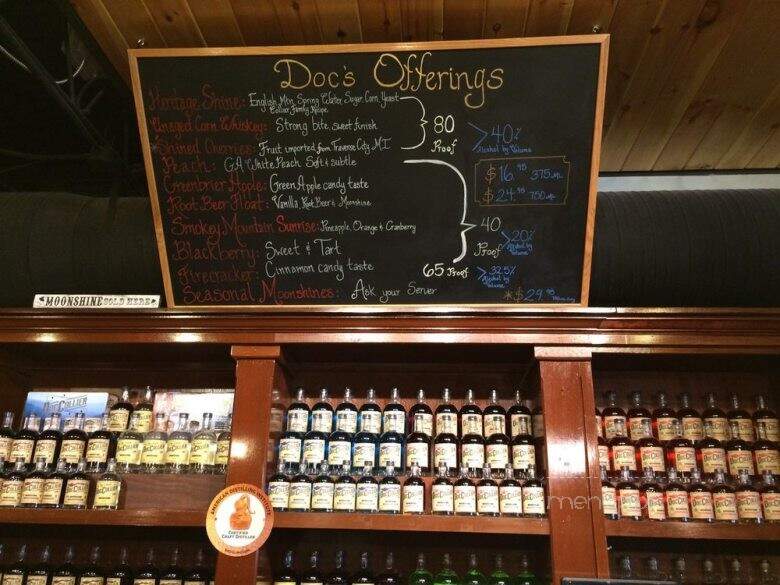 Doc's Offerings
Heritage Shine: English Mtn. Spring Water, Sugar, Corn, Yeast
Collier Family Recipe
Unaged Corn Whiskey: Strong bite, sweet finish
*Shined Cherries: Fruit imported from Traverse City, MI
Peach: GA White Peach Soft & subtle
Greenbrier Apple: Green Apple candy taste
Root Beer Float: Vanilla, Root Beer & Moonshine
Smoky Mountain Sunrise: Pineapple, Orange & Cranberry
Blackberry: Sweet & Tart
Firecracker: Cinnamon candy taste
Seasonal Moonshines: Ask your Server
80
Proof
>40%
Alcohol by
Volume
$16.95 375 mL
$24.95 750 mL
40
Proof
>20%
Alcohol by
Volume
65 Proof
>32.5%
Alcohol by
Volume
*$29.95
MOONSHINE SOLD HERE
DOC COLLIER
AMERICAN DISTILLING INSTITUTE
CERTIFIED
CRAFT DISTILLER
men